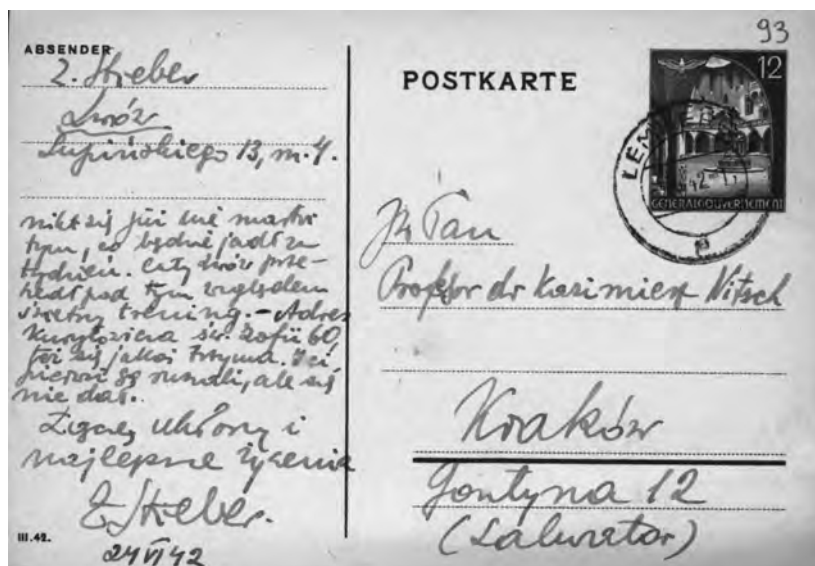 93
ABSENDER
Z. Stieber
Lwów
Supińskiego 13, m. 4.
nikt się już nie martwi
tym, co będzie jadł za
tydzień. Cały Lwów prze-
szedł pod tym względem
świetny trening. – Adres
Kuryłowicza św. Zofii 60,
też się jakoś trzyma. I ci
pierwsi go ruszali, ale się
nie dał.
Łączę ukłony i
najlepsze życzenia
Z Stieber.
24 VI 42
III.42.
POSTKARTE
12
GENERALGOUVERNEMENT
LEM
42
JW Pan
Profesor dr Kazimierz Nitsch
Kraków
Gontyna 12
(Salwator)